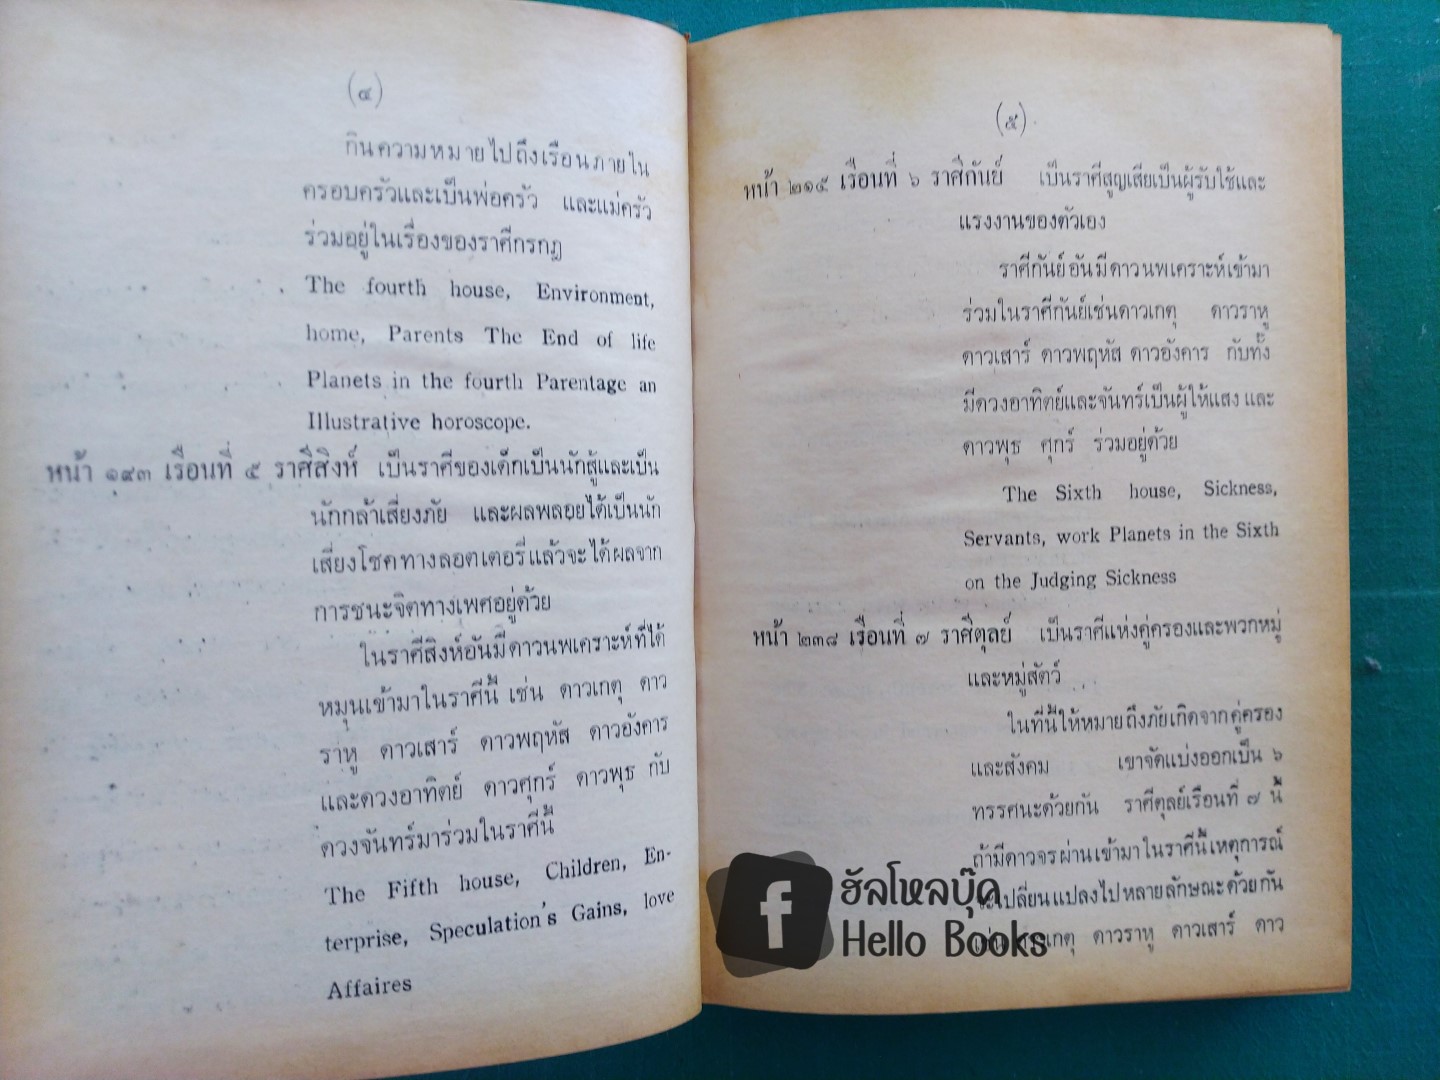 (๔)
กินความหมายไปถึงเรือนภายใน
ครอบครัวและเป็นพ่อครัว และแม่ครัว
ร่วมอยู่ในเรื่องของราศีกรกฎ
The fourth house, Environment,
home, Parents The End of life
Planets in the fourth Parentage an
Illustrative horoscope.
หน้า ๑๙๓ เรือนที่ ๕ ราศีสิงห์ เป็นราศีของเด็กเป็นนักสู้และเป็น
นักกล้าเสี่ยงภัย และผลพลอยได้เป็นนัก
เสี่ยงโชคทางลอตเตอรี่แล้วจะได้ผลจาก
การชนะจิตทางเพศอยู่ด้วย
ในราศีสิงห์อันมีดาวนพเคราะห์ที่ได้
หมุนเข้ามาในราศีนี้ เช่น ดาวเกตุ ดาว
ราหู ดาวเสาร์ ดาวพฤหัส ดาวอังคาร
และดวงอาทิตย์ ดาวศุกร์ ดาวพุธ กับ
ดวงจันทร์มาร่วมในราศีนี้
The Fifth house, Children, En-
terprise, Speculation's Gains, love
Affaires
(๕)
หน้า ๒๑๕ เรือนที่ ๖ ราศีกันย์ เป็นราศีสูญเสียเป็นผู้รับใช้และ
แรงงานของตัวเอง
ราศีกันย์อันมีดาวนพเคราะห์เข้ามา
ร่วมในราศีกันย์เช่นดาวเกตุ ดาวราหู
ดาวเสาร์ ดาวพฤหัส ดาวอังคาร กับทั้ง
มีดวงอาทิตย์และจันทร์เป็นผู้ให้แสง และ
ดาวพุธ ศุกร์ ร่วมอยู่ด้วย
The Sixth house, Sickness,
Servants, work Planets in the Sixth
on the Judging Sickness
หน้า ๒๓๘ เรือนที่ ๗ ราศีตุลย์ เป็นราศีแห่งคู่ครองและพวกหมู่
และหมู่สัตว์
ในที่นี้ให้หมายถึงภัยเกิดจากคู่ครอง
และสังคม เขาจัดแบ่งออกเป็น ๖
ทรรศนะด้วยกัน ราศีตุลย์เรือนที่ ๗ นี้
ถ้ามีดาวจรผ่านเข้ามาในราศีนี้เหตุการณ์
จะเปลี่ยนแปลงไปหลายลักษณะด้วยกัน
เช่น ดาวเกตุ ดาวราหู ดาวเสาร์ ดาว
f ฮัลโหลบุ๊ค
Hello Books